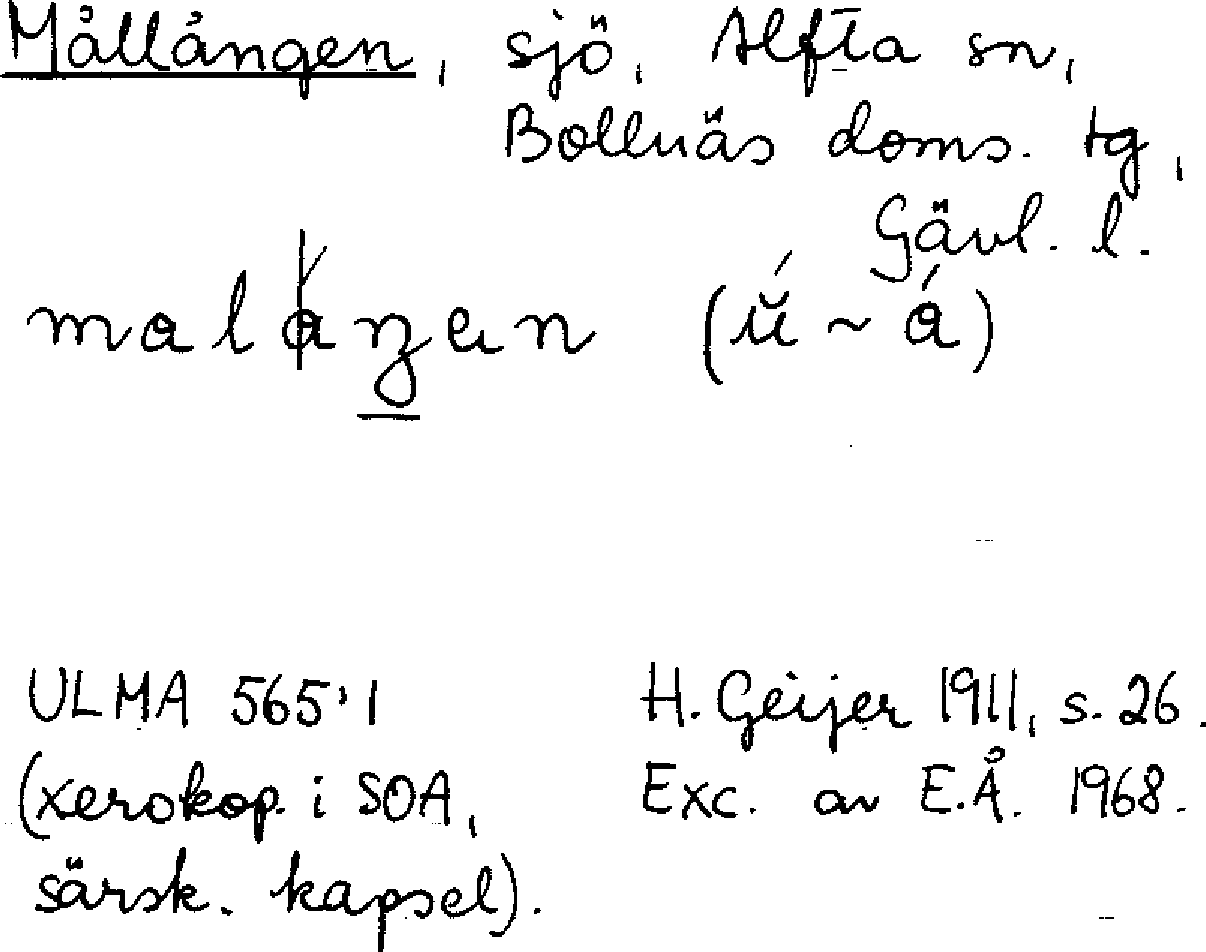 Mållången, sjö, Alfta sn,
Bollnäs doms. tg,
Gävl. l.
(ŭ́ ~ á)
ULMA 565:1
H. Geijer 1911, s. 26.
(xerokop. i SOA,
Exc. av E.Å. 1968.
särsk. kapsel).